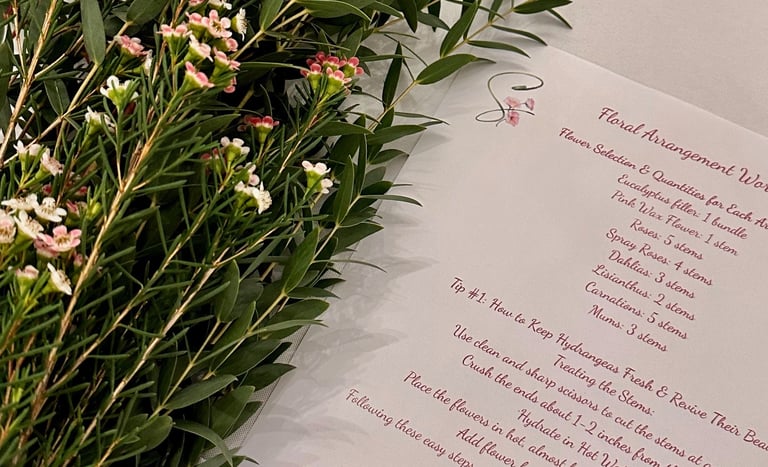 S
Floral Arrangement
Flower Selection & Quantities for Each
Eucalyptus filler: 1 bundle
Pink Wax Flower: 1 stem
Roses: 5 stems
Spray Roses: 4 stems
Dahlias: 3 stems
Lisianthus: 2 stems
Carnations: 5 stems
Mums: 3 stems
Tip #1: How to Keep Hydrangeas Fresh & Revive Their
Treating the Stems:
Use clean and sharp scissors to cut the stems at
Crush the ends about 1-2 inches from
Place the flowers in hot, almost
Hydrate in Hot
Following these easy steps
Add flower